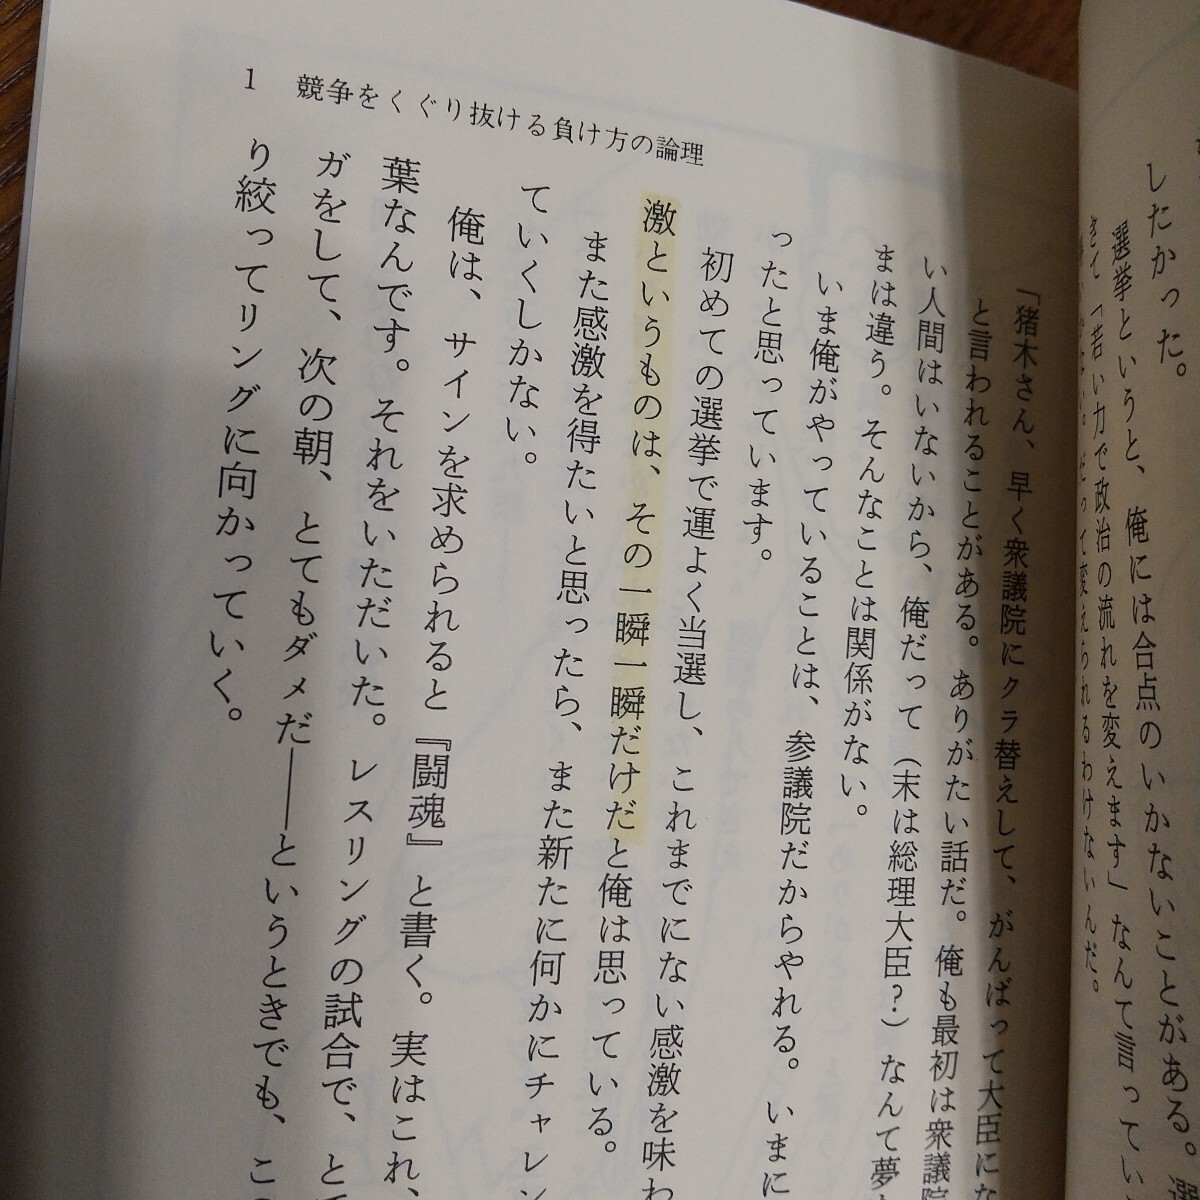 したかった。
選挙というと、俺には合点のいかないことがある。選
きて「若い力で政治の流れを変えます」なんて言ってい
って変えられるわけないんだ。
「猪木さん、早く衆議院にクラ替えして、がんばって大臣にな
と言われることがある。ありがたい話だ。俺も最初は衆議院
い人間はいないから、俺だって(末は総理大臣?)なんて夢
まは違う。そんなことは関係がない。
いま俺がやっていることは、参議院だからやれる。いまに
ったと思っています。
初めての選挙で運よく当選し、これまでにない感激を味わ
激というものは、その一瞬一瞬だけだと俺は思っている。
また感激を得たいと思ったら、また新たに何かにチャレン
ていくしかない。
俺は、サインを求められると『闘魂』と書く。実はこれ、
葉なんです。それをいただいた。レスリングの試合で、と
ガをして、次の朝、とてもダメだ――というときでも、こ
り絞ってリングに向かっていく。
1 競争をくぐり抜ける負け方の論理